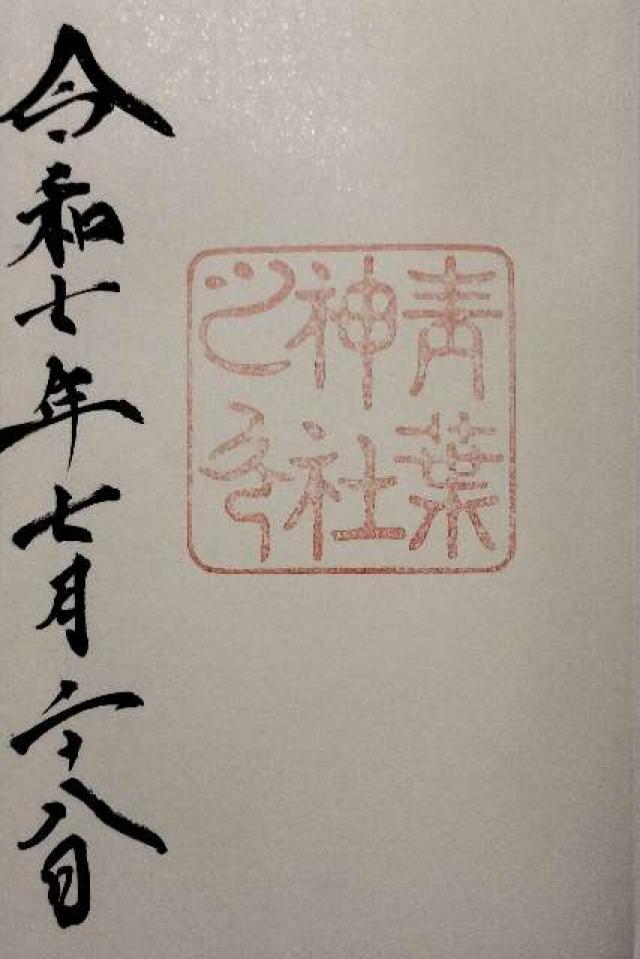 青葉
神社
之印
令和七年七月二十八日